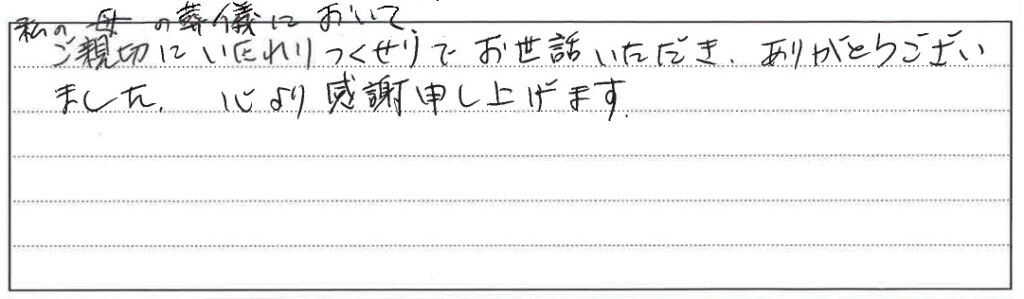 私の母の葬儀において、
ご親切にいたれりつくせりでお世話いただき、ありがとうござい
ました。 心より感謝申し上げます。